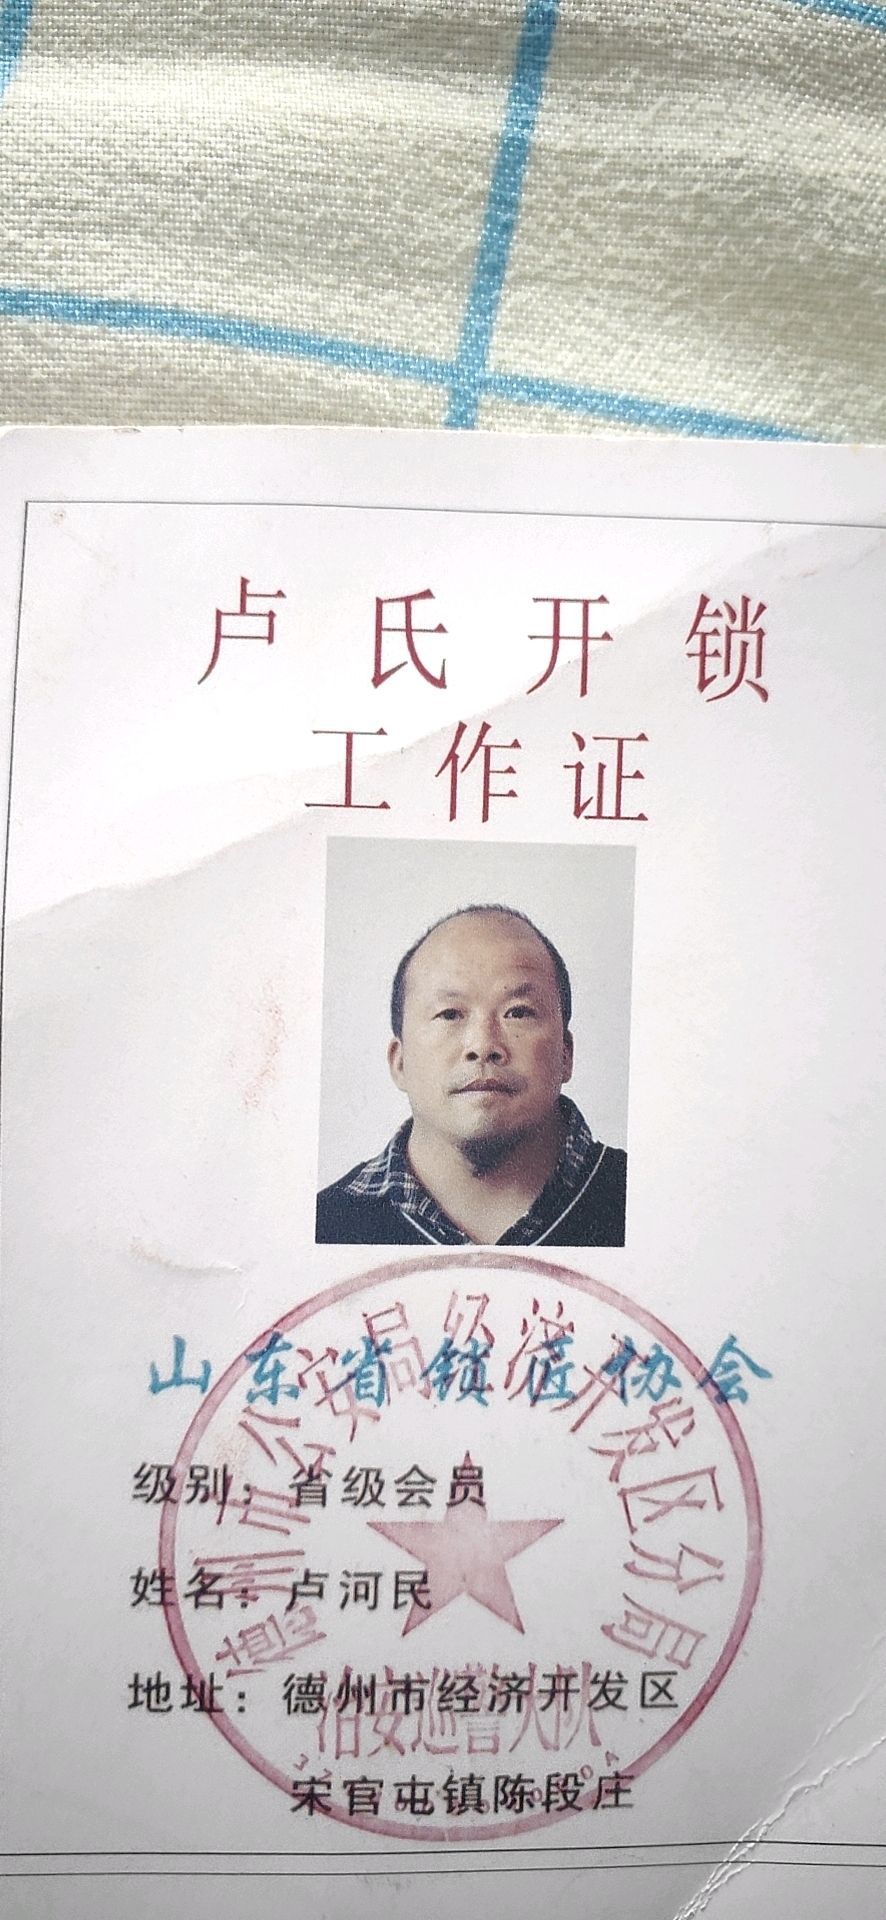 卢氏开锁
工作证
山东省锁匠协会
级别：省级会员
姓名：卢河民
地址：德州市经济开发区
宋官屯镇陈段庄
德州市公安局经济开发区分局
治安巡警大队